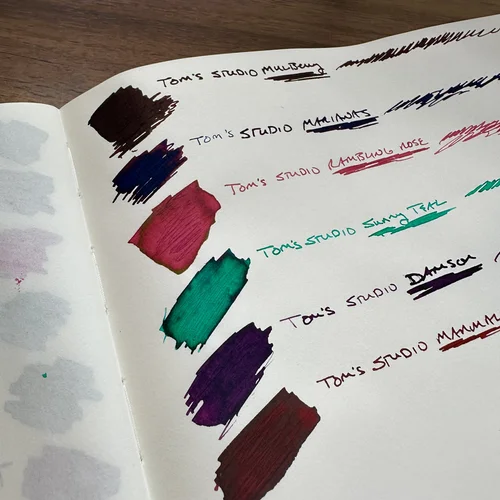 Tom's Studio Mulberry
Tom's Studio Marianas
Tom's Studio Rambling Rose
Tom's Studio Surry Teal
Tom's Studio Damson
Tom's Studio